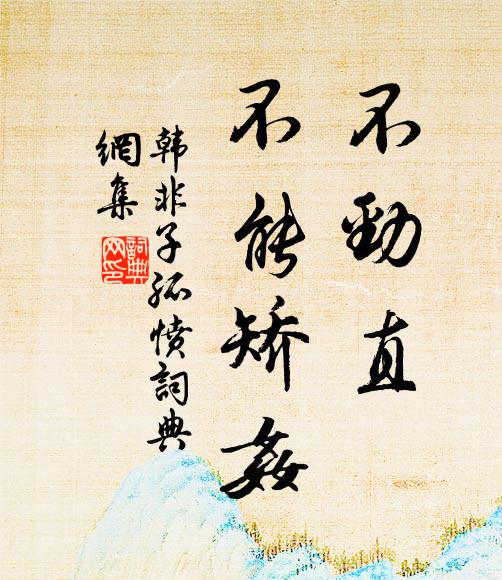 不勁直
不能矫姦
韩非子孤憤詞典
網集
詞典
网印